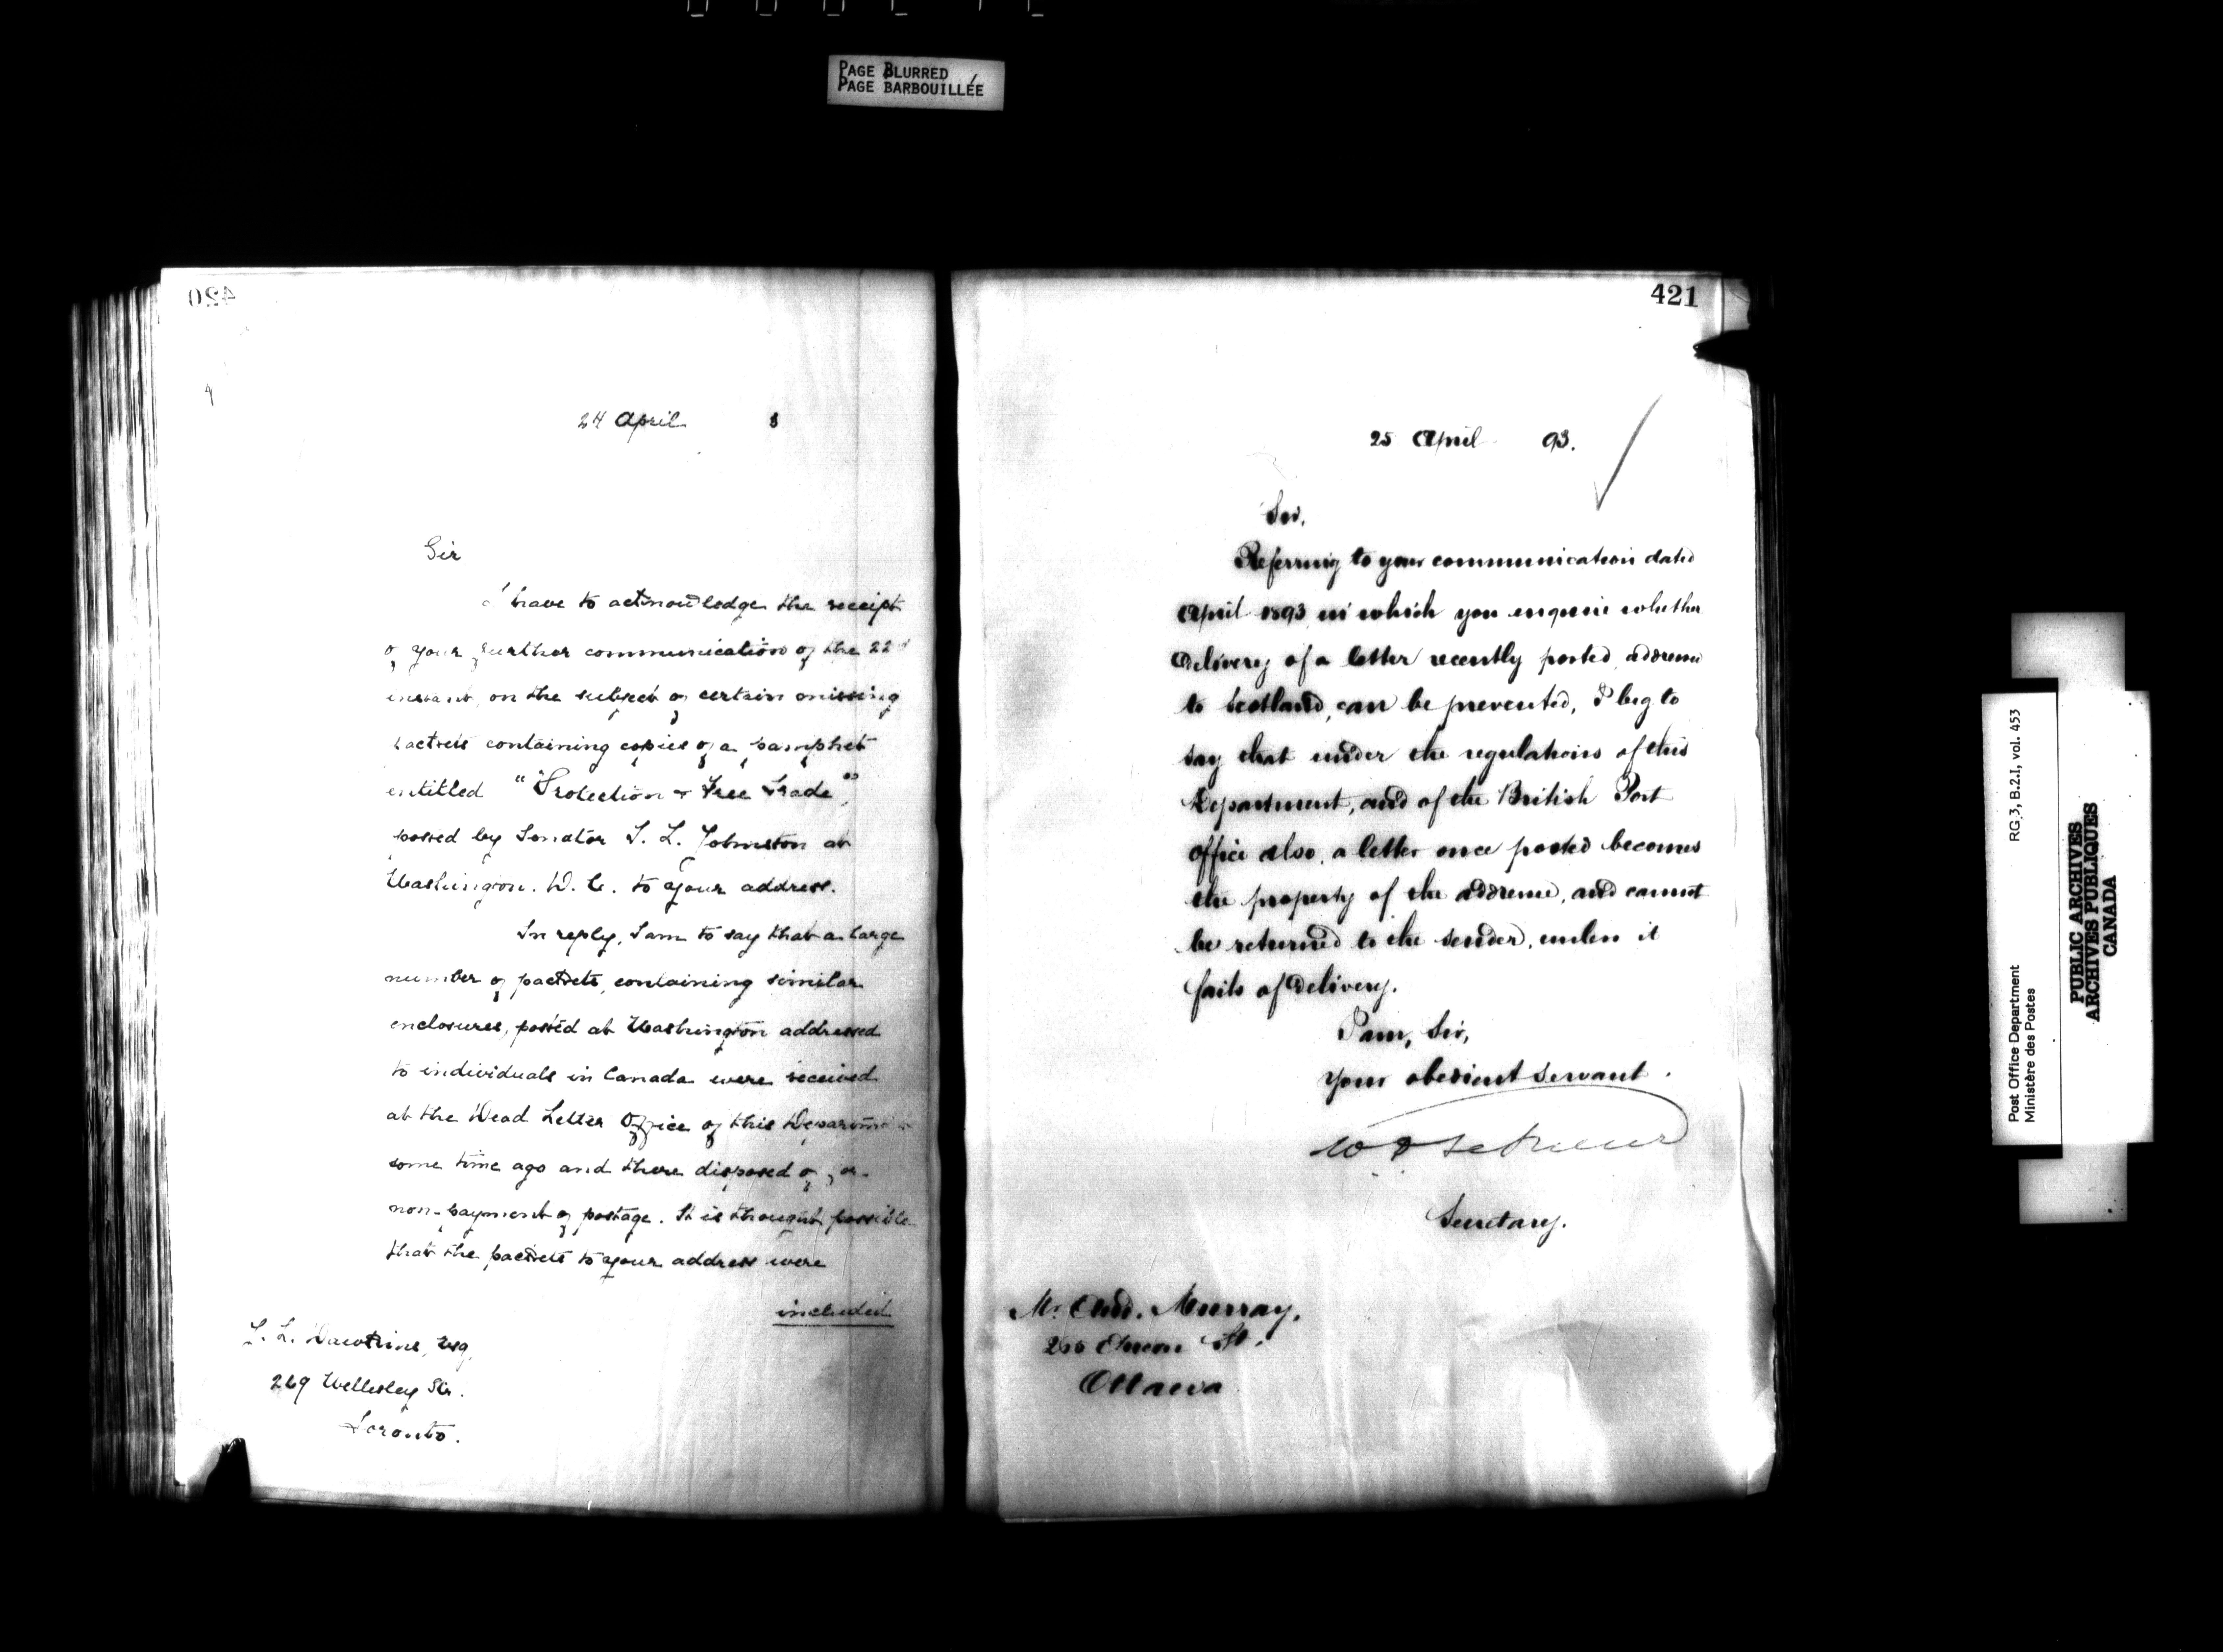 PAGE BLURRED
PAGE BARBOUILLÉE
420
24 April 3
Sir
I have to acknowledge the receipt
of your further communication of the 22d
instant, on the subject of certain missing
packets containing copies of a pamphlet
entitled "Protection & Free Trade",
posted by Senator T. L. Johnston at
Washington. D. C. to your address.
In reply, I am to say that a large
number of packets, containing similar
enclosures, posted at Washington addressed
to individuals in Canada were received
at the Dead Letter Office of this Department
some time ago and there disposed of for
non-payment of postage. It is thought possible
that the packets to your address were
included
Dawkins, Esq.
269 Wellesley Str.
Toronto.
421
25 April 93.
Sir,
Referring to your communication dated
April 1893 in which you enquire whether
delivery of a letter recently posted, addressed
to Scotland, can be prevented, I beg to
say that under the regulations of this
Department, and of the British Post
office also, a letter once posted becomes
the property of the addressee, and cannot
be returned to the sender, unless it
fails of delivery.
I am, Sir,
Your obedient servant.
Secretary.
Mr. And. Murray,
St.
Ottawa
Post Office Department
Ministère des Postes
RG 3, B.2.I, vol. 453
PUBLIC ARCHIVES
ARCHIVES PUBLIQUES
CANADA